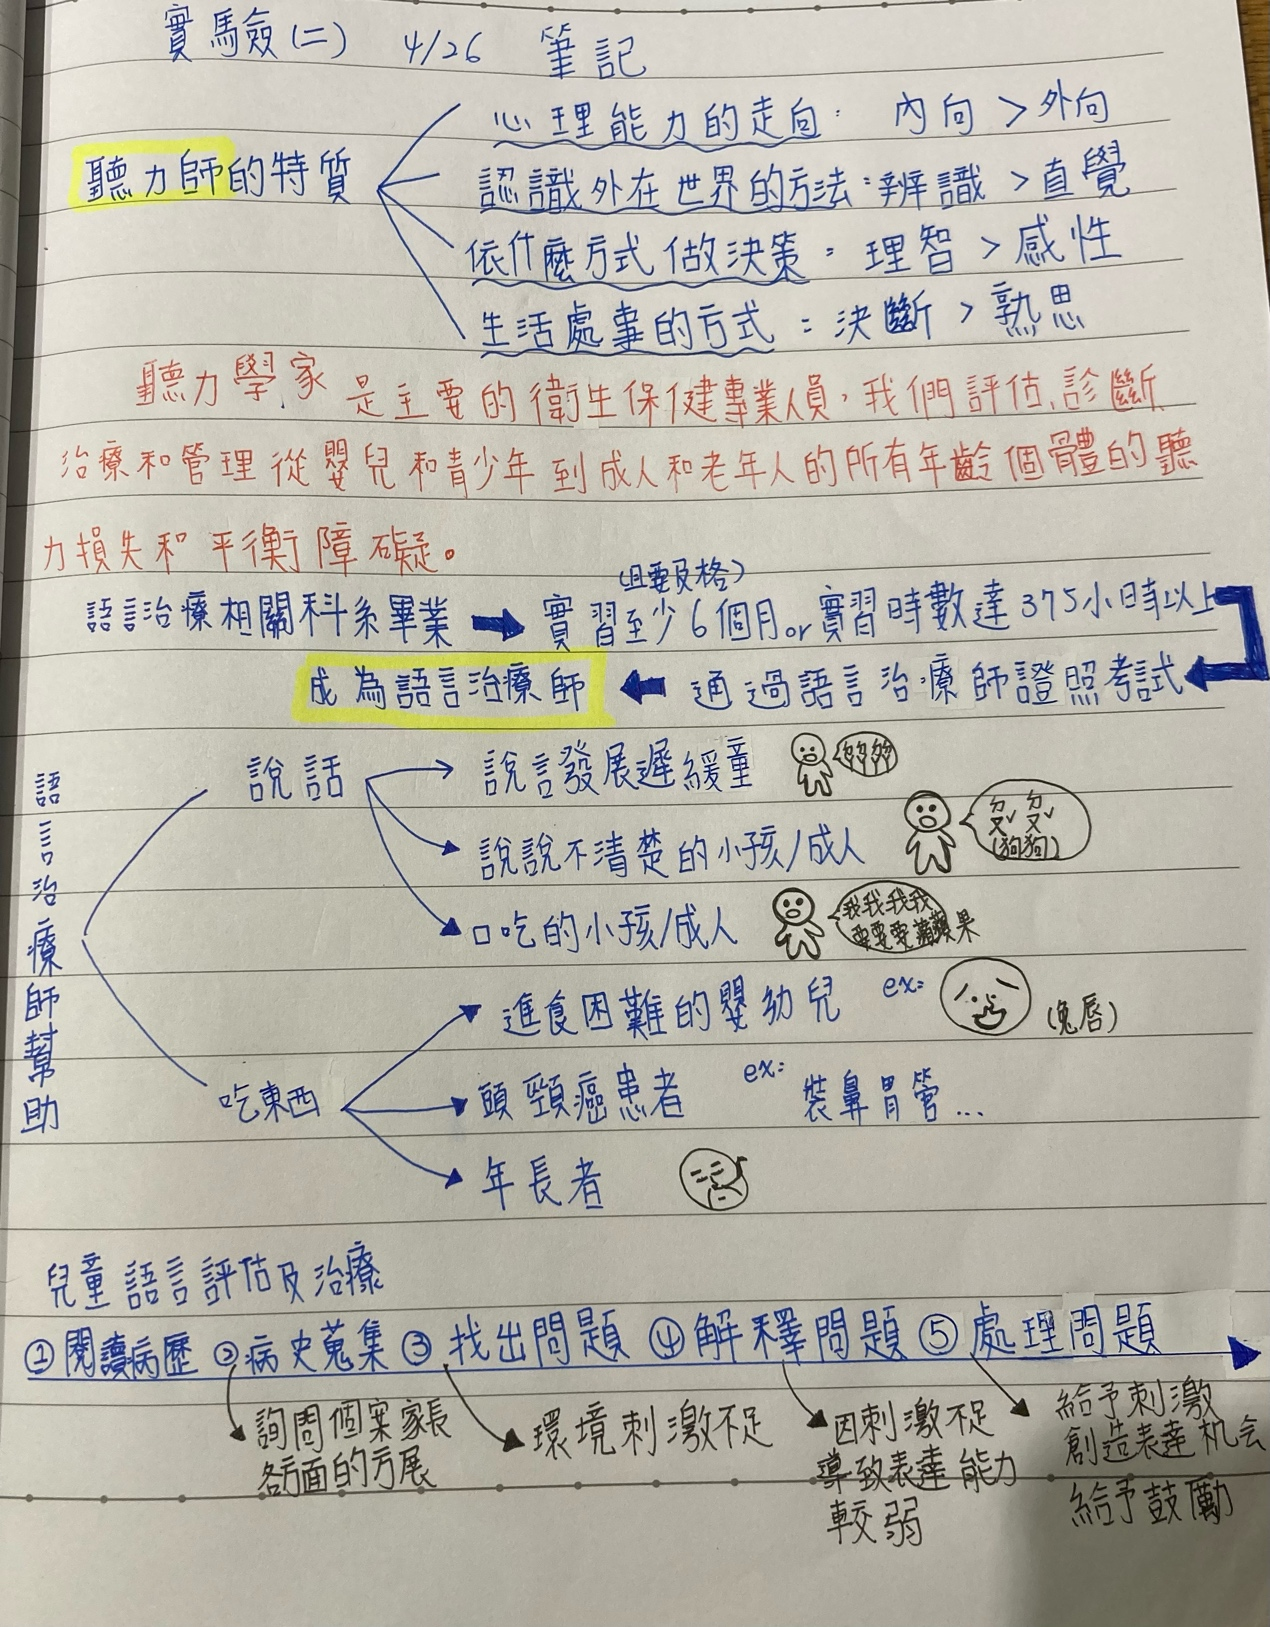 實驗(二) 4/26 筆記
聽力師的特質
心理能力的走向: 內向 > 外向
認識外在世界的方法:辨識 > 直覺
依什麼方式做決策: 理智 > 感性
生活處事的方式: 決斷 > 熟思
聽力學家是主要的衛生保健專業人員,我們評估、診斷
治療和管理從嬰兒和青少年到成人和老年人的所有年齡個體的聽
力損失和平衡障礙。
(且要及格)
語言治療相關科系畢業 → 實習至少6個月or實習時數達375小時以上
成為語言治療師 ← 通過語言治療師證照考試
語言治療師幫助
說話
說言發展遲緩童
說說不清楚的小孩/成人
ㄉㄡˇㄉㄡˇ
(狗狗)
口吃的小孩/成人
我我我我
要要要蘋蘋果
吃東西
進食困難的嬰幼兒 ex: (兔唇)
頭頸癌患者 ex: 裝鼻胃管...
年長者
兒童語言評估及治療
①閱讀病歷 ②病史蒐集 ③找出問題 ④解釋問題 ⑤處理問題
詢問個案家長
各方面的方展
環境刺激不足
因刺激不足
導致表達能力
較弱
給予刺激
創造表達机会
給予鼓勵